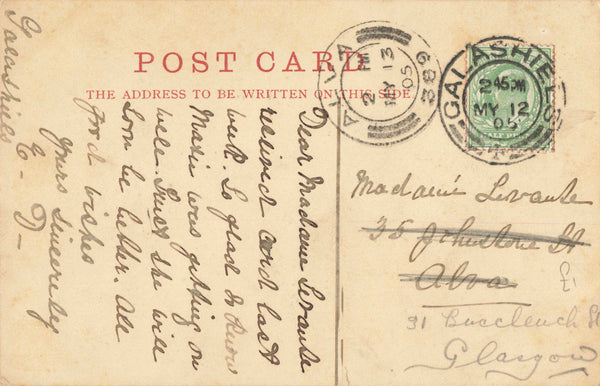 POST CARD
THE ADDRESS TO BE WRITTEN ON THIS SIDE
ALVA
2 PM
MY 13
05
389
GALASHIELS
2 45 PM
MY 12
05
Galashiels
Dear Madame Levante
received card last
week. So glad to know
Maxie was getting on
well. Trust she will
soon be better. All
good wishes
Yours Sincerely
E- D-
Madame Levante
35 Johnstone St
Alva
£1
31 Buccleuch St
Glasgow